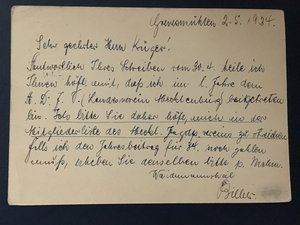 Grevesmühlen 2.5.1934.
Sehr geehrter Herr Krüger!
Beantwortlich Ihres Schreiben vom 30.4. teile ich
Ihnen höfl. mit, daß ich im l. Jahre dem
A. D. J. V. (Landesverein Mecklenburg) beigetreten
bin. bitte Sie daher höfl. mich in der
Mitgliederliste des Meckl. Jagdvereins zu streichen
falls ich den Jahresbeitrag für 34. noch zahlen
muß, erheben Sie denselben bitte p. Nachn.
Waidmannsheil